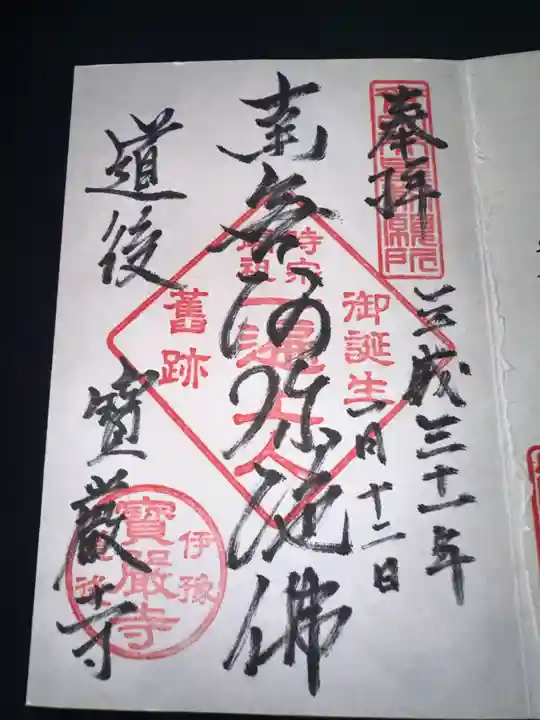 奉拝
平成三十一年
一月十二日
南無阿弥陀佛
道後 寶厳寺
御誕生
時宗
一遍上人
舊跡
伊豫
寶嚴寺